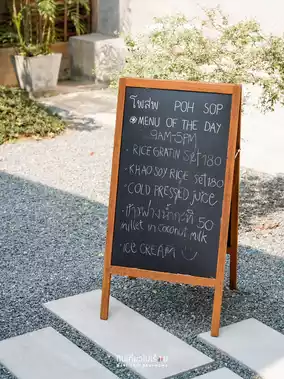 โพสพ POH SOP
MENU OF THE DAY
9AM-5PM
• RICE GRATIN SET 180
• KHAO SOY RICE SET 180
• COLD PRESSED JUICE
• ข้าวฟ่างน้ำกะทิ 50
millet in coconut milk
• ICE CREAM